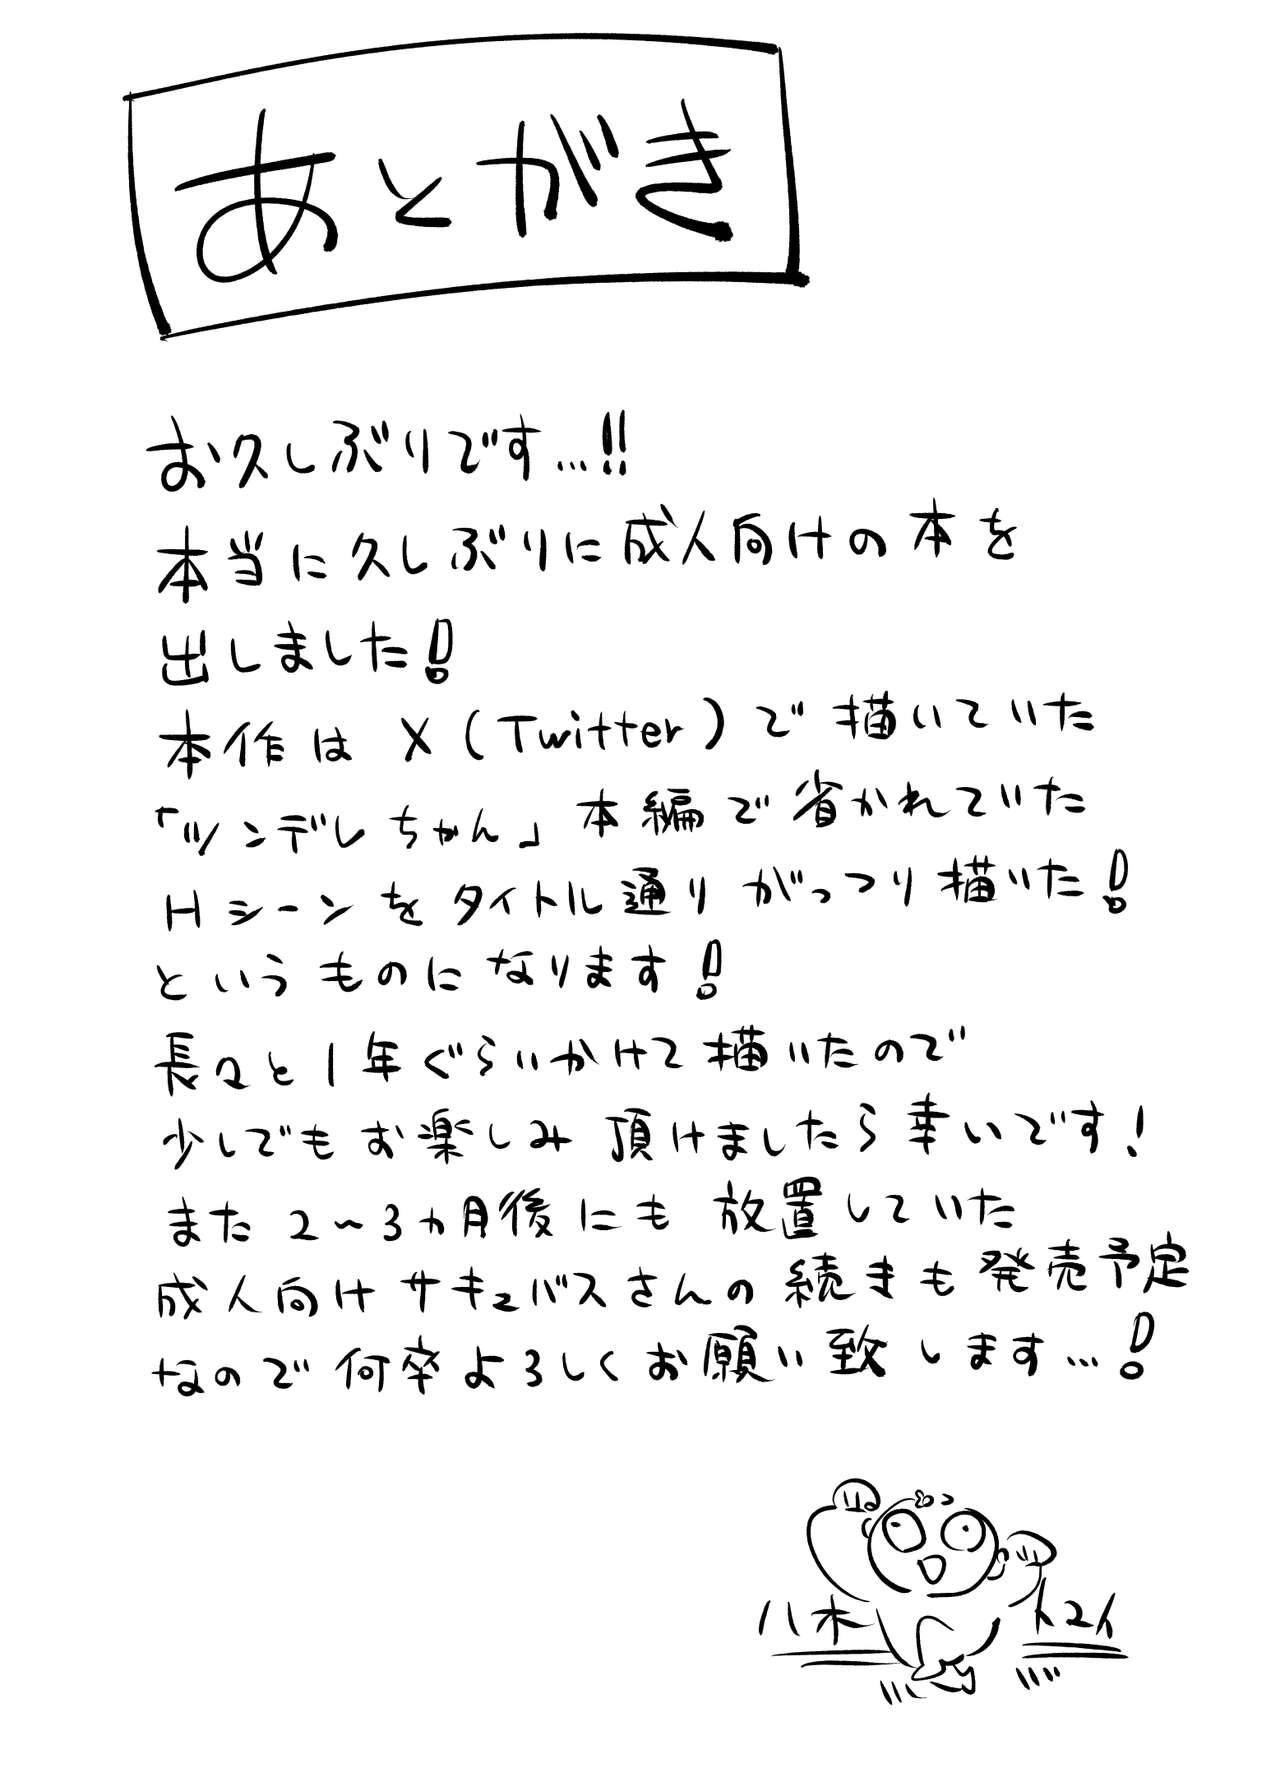 あとがき
お久しぶりです…!!
本当に久しぶりに成人向けの本を
出しました!
本作は X (Twitter) で描いていた
「ツンデレちゃん」本編で省かれていた
Hシーンをタイトル通りがっつり描いた!
というものになります!
長々と1年ぐらいかけて描いたので
少しでもお楽しみ頂けましたら幸いです!
また2~3ヵ月後にも放置していた
成人向けサキュバスさんの続きも発売予定
なので何卒よろしくお願い致します…!
八木 トマト